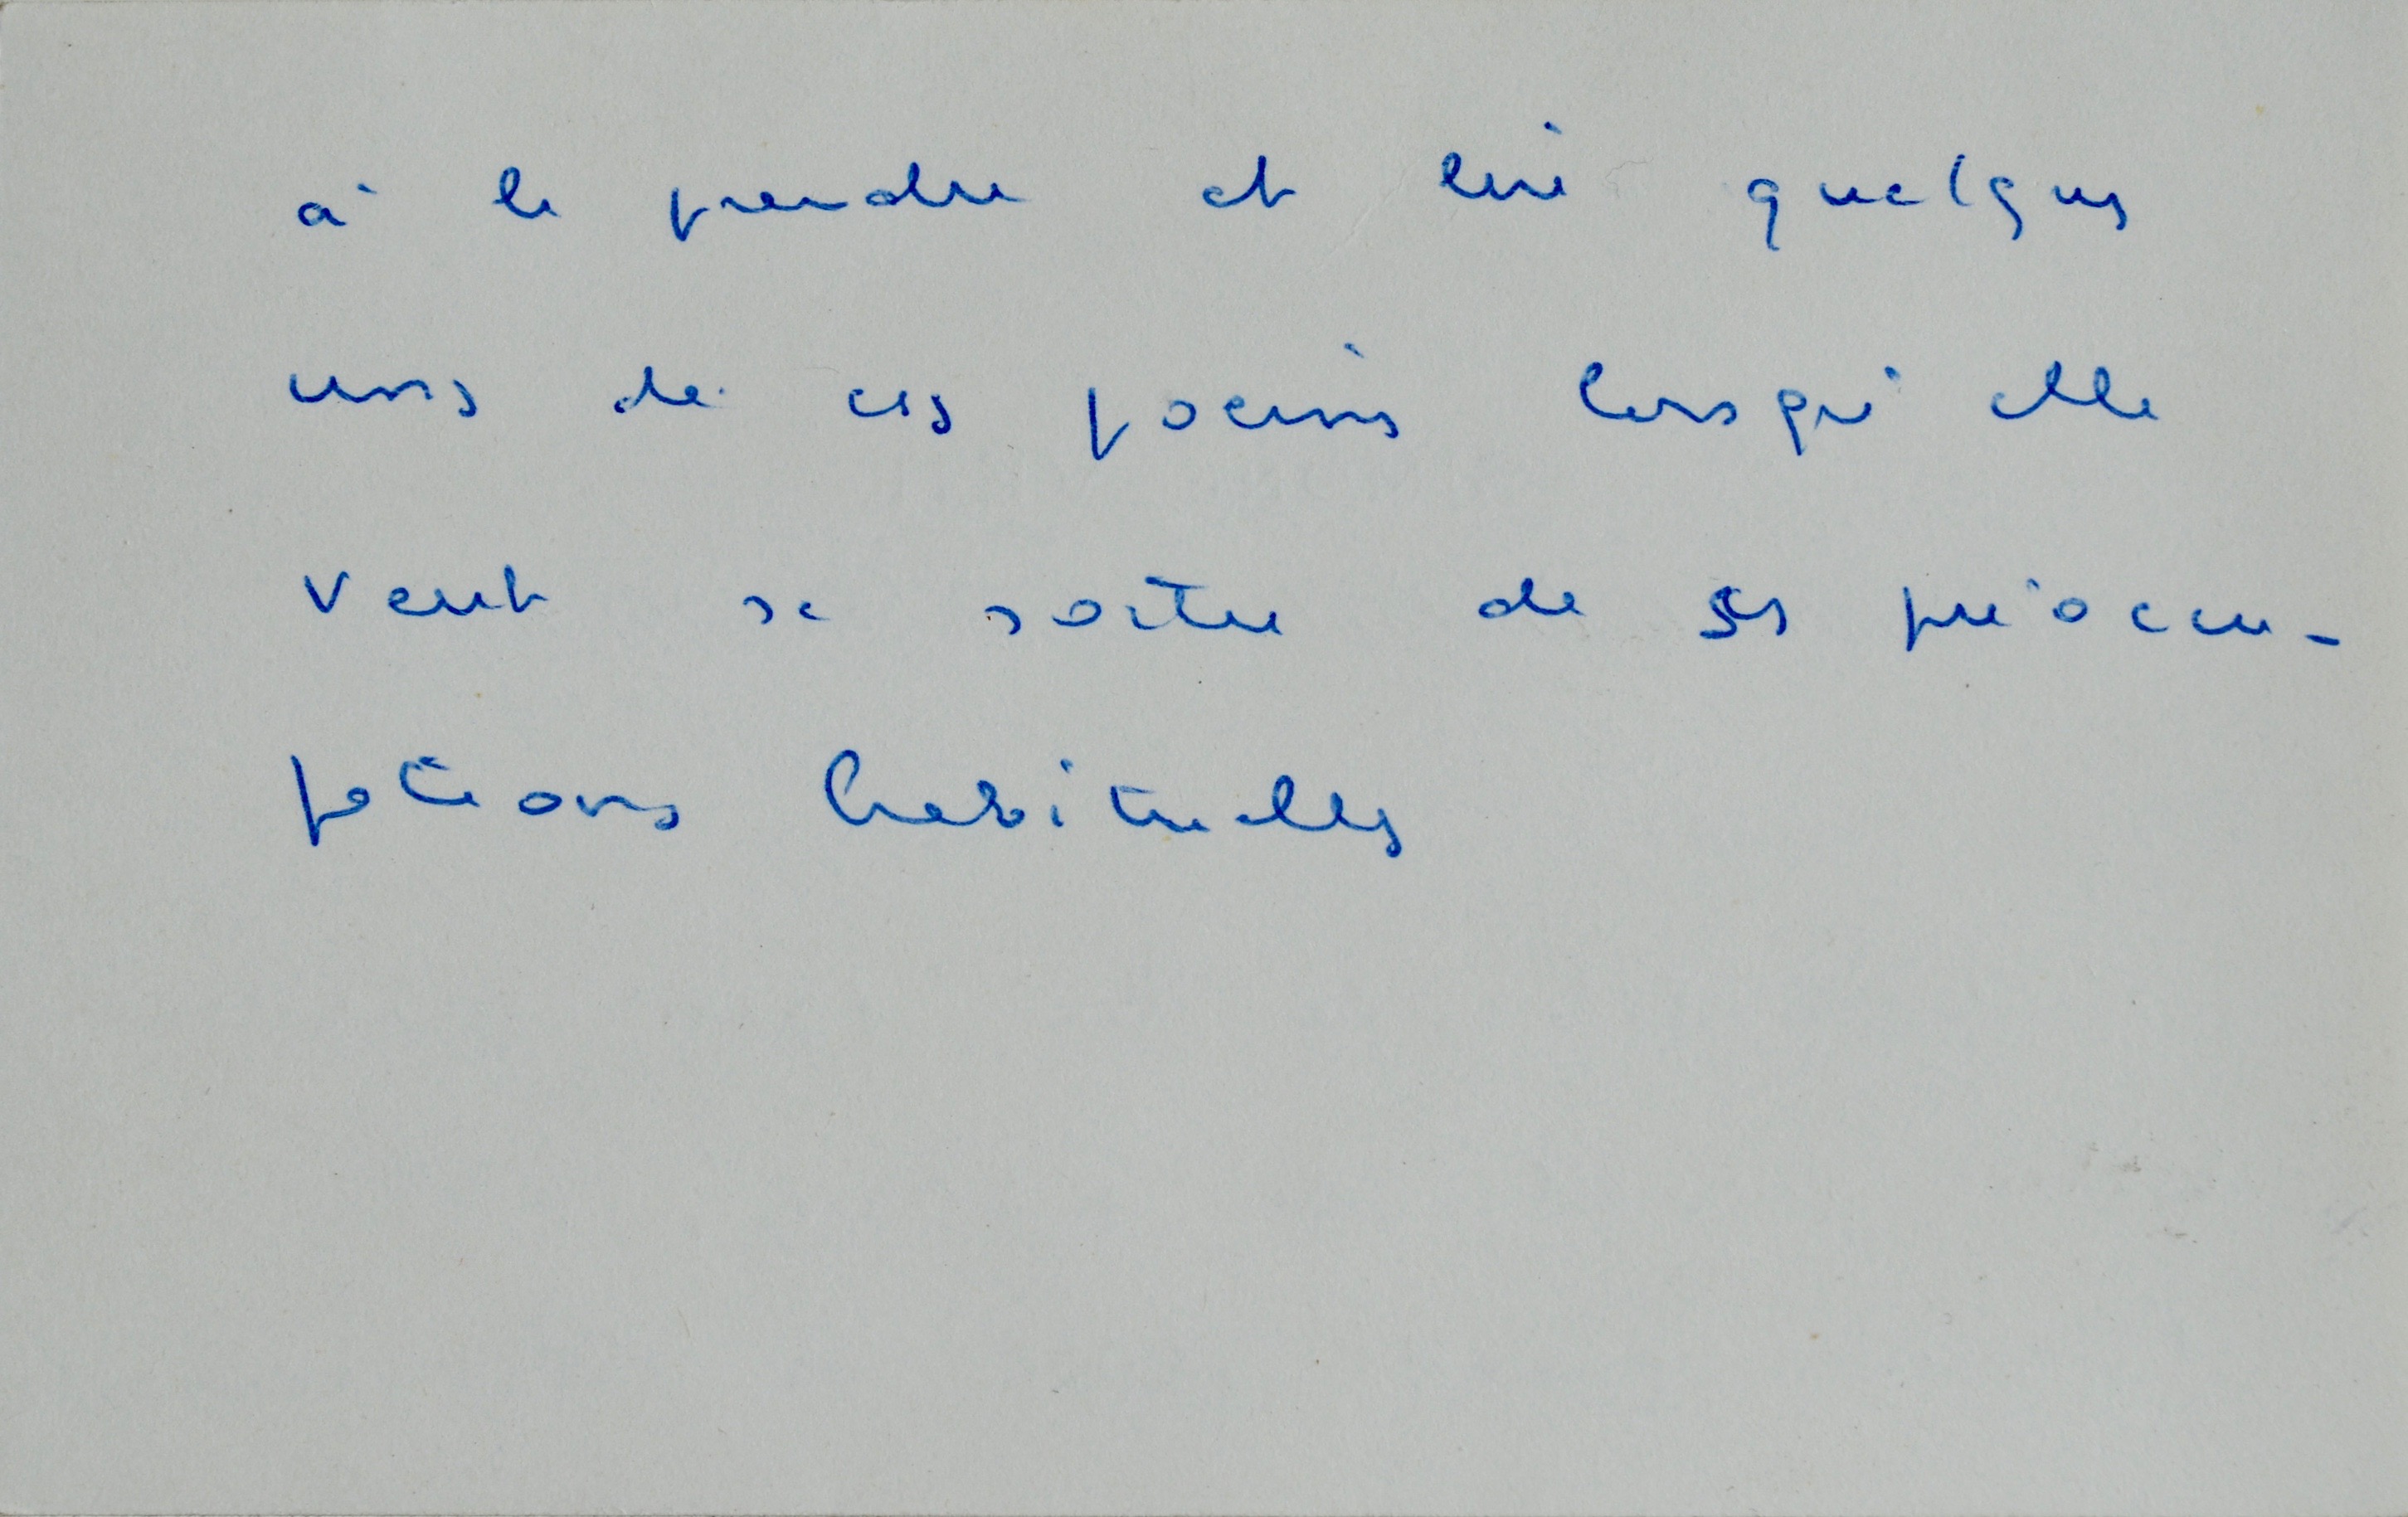 à le prendre et lire quelques
uns de ces poèmes lorsqu'elle
veut se sortir de ses préoccu-
pations habituelles